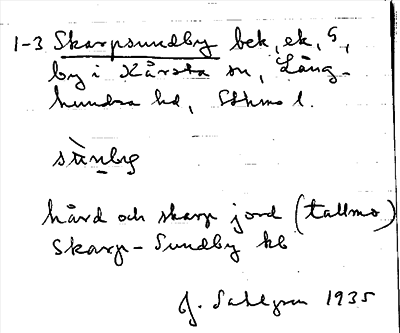 1-3 Skarpsundby bek, ek, G,
by i Kårsta sn, Lång-
hundra hd, Sthms l.
sùnby
hård och skarp jord (tallmo)
Skarp-Sundby kb
J. Sahlgren 1935